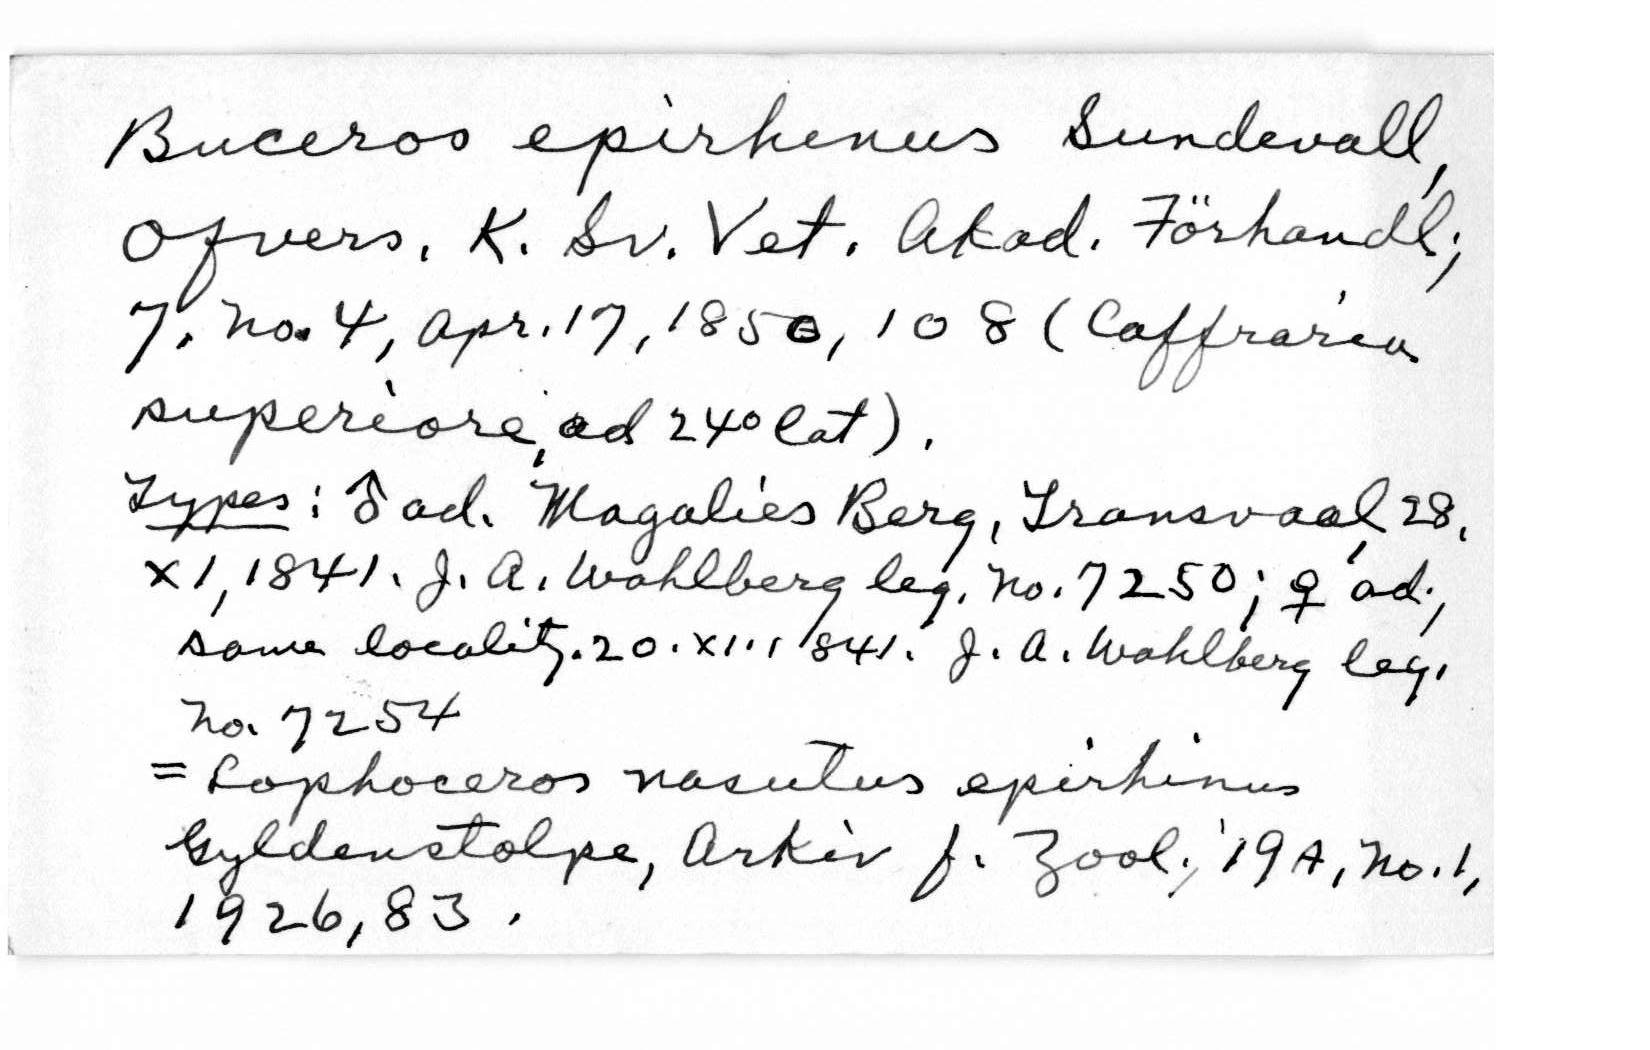 Buceros epirhenus Sundevall,
Ofvers. K. Sv. Vet. Akad. Förhandl.,
7, No. 4, Apr. 17, 1850, 108 (Caffraria
superiore, ad 24° lat).
Types: ♂ ad. Magalies Berg, Transvaal, 28.
XI, 1841. J. A. Wahlberg leg. No. 7250; ♀ ad.,
same locality. 20. XII. 1841. J. A. Wahlberg leg.
No. 7254
= Lophoceros nasutus epirhinus
Gyldenstolpe, Arkiv f. Zool., 19A, No. 1,
1926, 83.